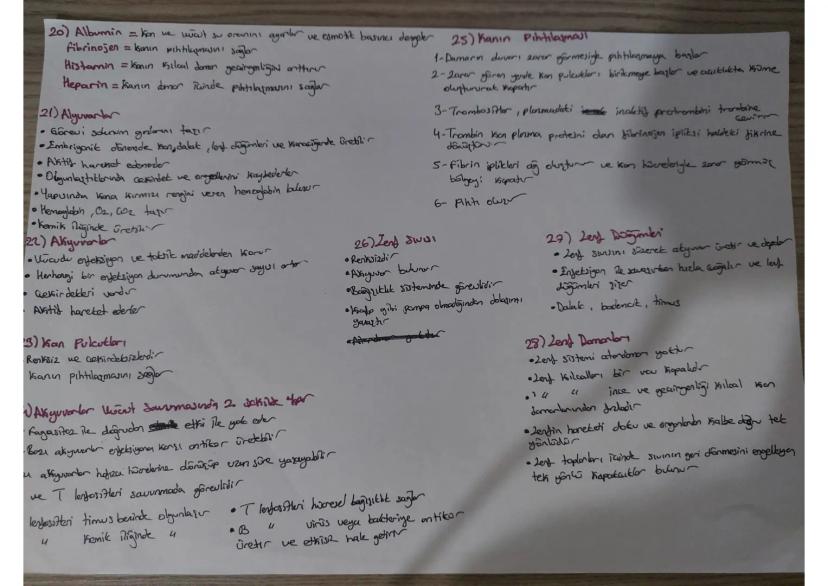 20) Albumin = Kan ve vücut su oranını ayarlar ve osmotik basıncı dengeler
Fibrinojen = Kanın pıhtılaşmasını sağlar
Histamin = Kanın kılcal damar geçirgenliğini arttırır
Heparin = Kanın damar içinde pıhtılaşmasını sağlar
21) Alyuvarlar
• Görevi solunum gazlarını taşır
• Embriyonik dönemde dalak, lenf düğümleri ve karaciğerde üretilir
• Aktif hareket edemezler
• Olgunlaştıklarında çekirdek ve organellerini kaybederler
• Yapısında kana kırmızı rengini veren hemoglobin bulunur
• Hemoglobin, O2, CO2 taşır
• Kemik iliğinde üretilir
22) Akyuvarlar
• Vücudu enfeksiyon ve toksik maddelerden korur
• Herhangi bir enfeksiyon durumunda akyuvar sayısı artar
• Çekirdekleri vardır
• Aktif hareket ederler
3) Kan Pulcukları
Renksiz ve çekirdeksizlerdir
Kanın pıhtılaşmasını sağlar
) Akyuvarlar Vücut Savunmasında 2 şekilde
Fagositoz ile doğrudan etki ile yok eder
Bazı akyuvarlar enfeksiyona karşı antikor üretebilir
akyuvarlar hafıza hücrelerine dönüşüp uzun süre yaşayabilir
ve T lenfositleri savunmada görevlidir
lenfositleri timus bezinde olgunlaşır
" Kemik iliğinde "
• T lenfositleri hücresel bağışıklık sağlar
• B " virüs veya bakteriye antikor
üretir ve etkisiz hale getirir
25) Kanın Pıhtılaşması
1- Damarın duvarı zarar görmesiyle pıhtılaşmaya başlar
2- Zarar gören yerde kan pulcukları birikmeye başlar ve küme
oluşturarak kapatır
3- Trombositler, plazmadaki inaktif protrombini trombine
çevirir
4- Trombin kan plazma proteini olan fibrinojen ipliksi haldeki fibrine
dönüştürür
5- Fibrin iplikleri ağ oluşturur ve kan hücreleriyle zarar görmüş
bölgeyi kapatır
6- Pıhtı oluşur
26) Lenf Sıvısı
• Renksizdir
• Akyuvar bulunur
• Bağışıklık sisteminde görevlidir
• Kalp gibi pompa olmadığından dolaşımı
yavaştır
27) Lenf Düğümleri
• Lenf sıvısını süzerek akyuvar üretir ve depolar
• Enfeksiyon ile savaşırken hızla çoğalır ve lenf
düğümleri şişer
• Dalak, bademcik, timus
28) Lenf Damarları
• Lenf sistemi atardamarı yoktur
• Lenf kılcalları bir ucu kapalıdır
• " " ince ve geçirgenliği kılcal kan
damarlarından fazladır
• Lenfin hareketi doku ve organlardan kalbe doğru tek
yönlüdür
• Lenf toplarları içinde sıvının geri dönmesini engelleyen
tek yönlü kapakçıklar bulunur